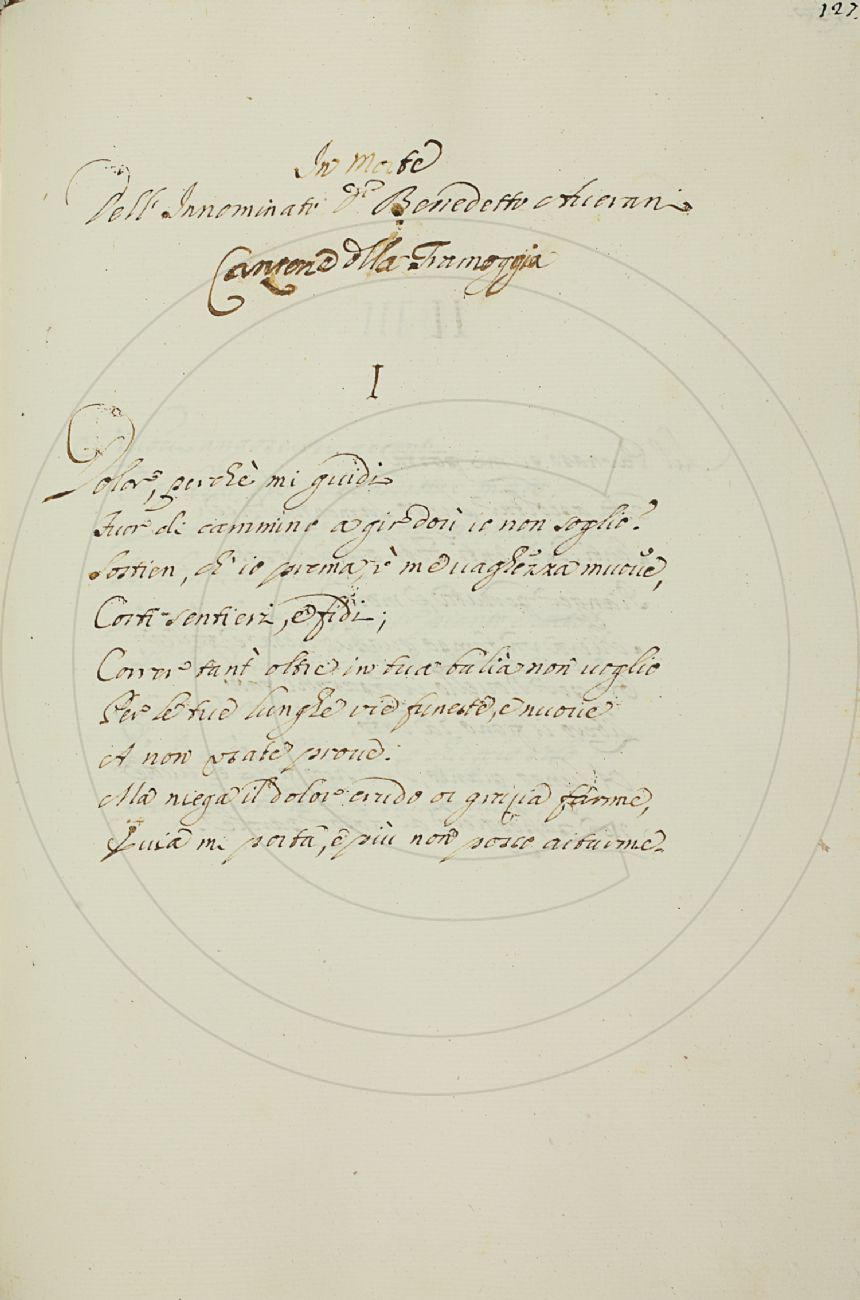 127.
In Morte
Dell' Innominato Dr. Benedetto Averani
Canzone della Tramoggia
I
Dolor, perchè mi guidi
Fuor di cammino a gir dov' io non soglio?
Sostien, ch' io prema, se me vaghezza muove,
Corti sentieri, e fidi;
Correr tant' oltre in tua balìa non voglio
Per le tue lunghe vie funeste, e nuove
A non usate prove.
Ma niega il dolor crudo or grazia farme,
E via mi porta, e più non posso aitarme.